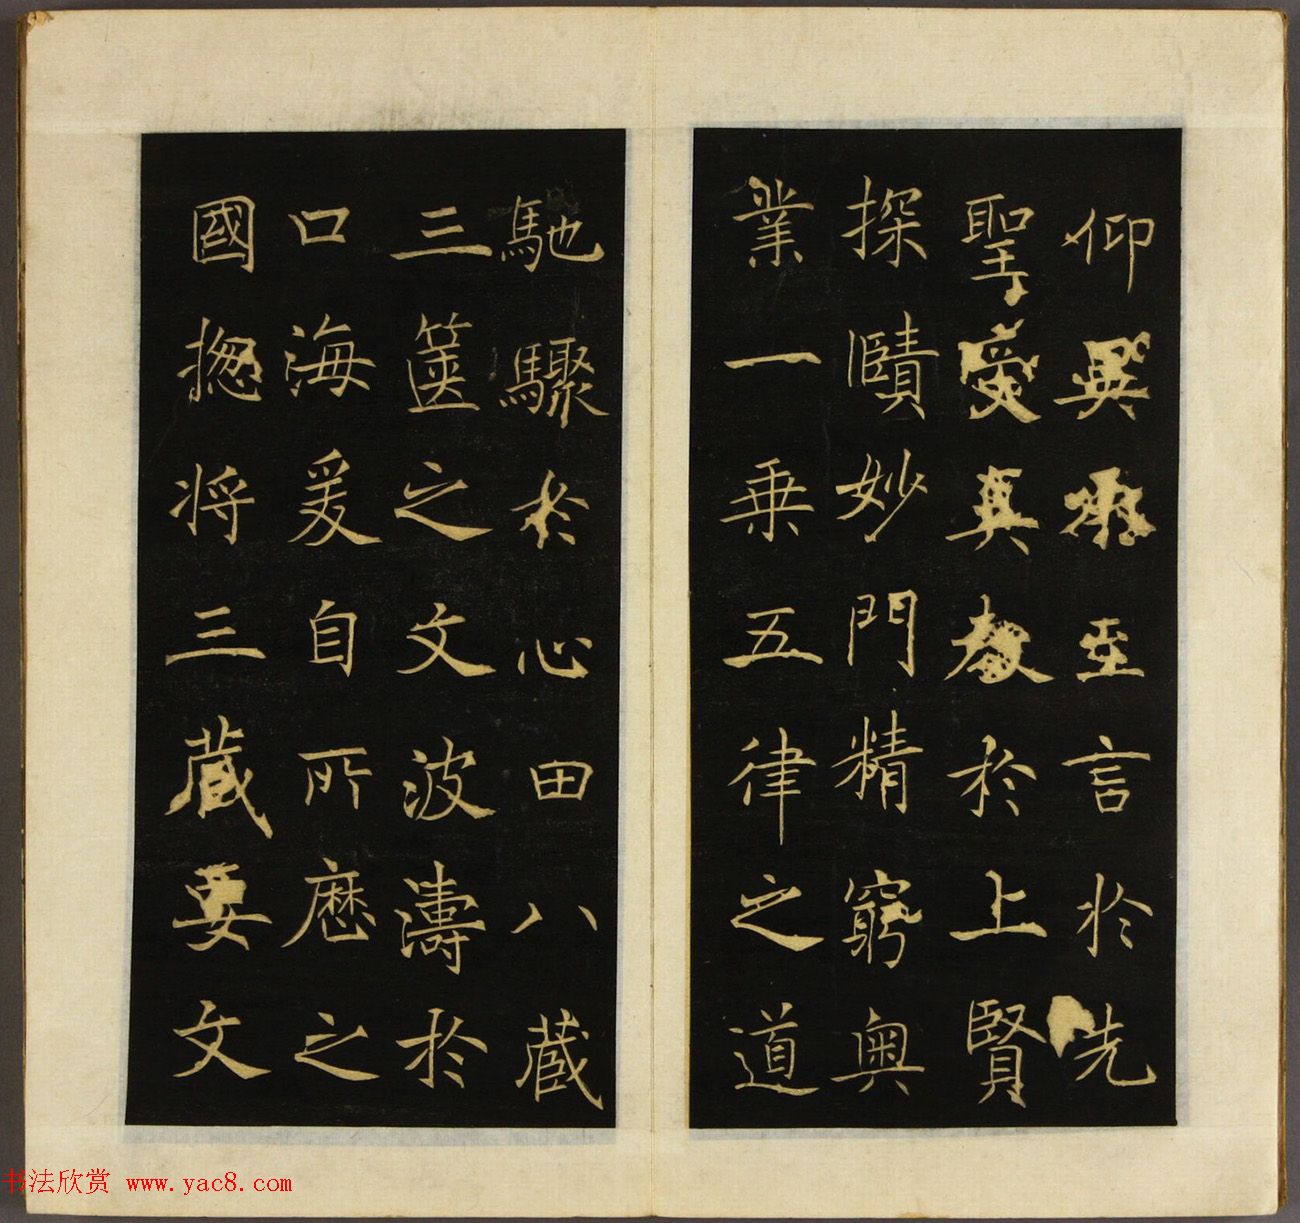 仰畢承至言於先
聖受真教於上賢
探賾妙門精窮奧
業一乗五律之道
馳驟於心田八蔵
三篋之文波濤於
口海爰自所歷之
國揔将三蔵要文
书法欣赏 www.yac8.com